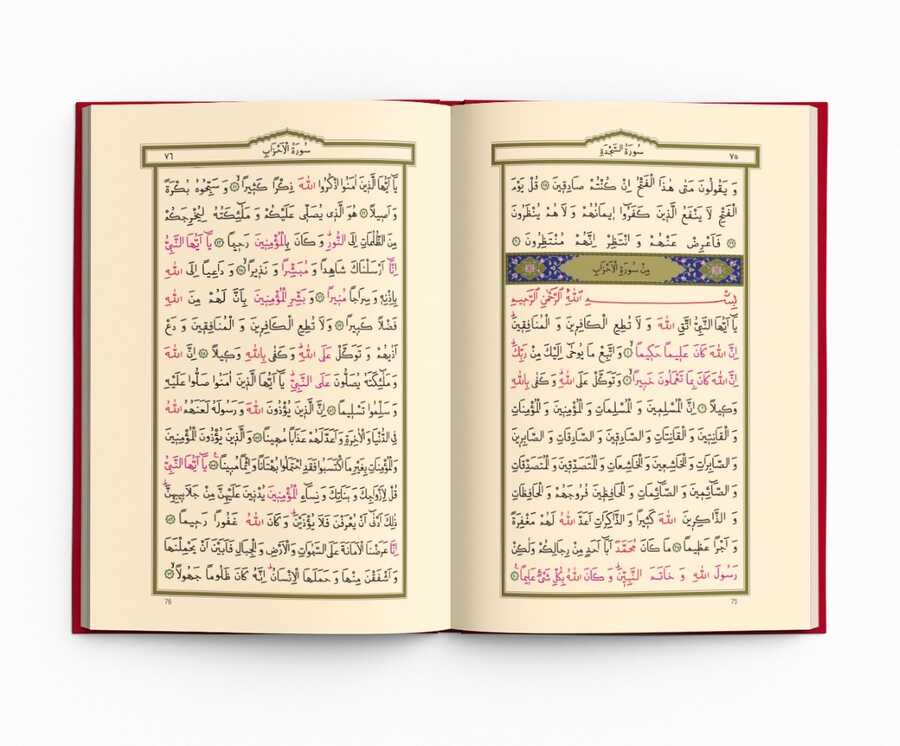 سُورَةُ السَّجْدَةِ ٧٥
وَ يَقُولُونَ مَتٰى هٰذَا الْفَتْحُ اِنْ كُنْتُمْ صَادِقِينَ قُلْ يَوْمَ
الْفَتْحِ لَا يَنْفَعُ الَّذِينَ كَفَرُٓوا اِيمَانُهُمْ وَ لَا هُمْ يُنْظَرُونَ
فَاَعْرِضْ عَنْهُمْ وَ انْتَظِرْ اِنَّهُمْ مُنْتَظِرُونَ
مِنْ سُورَةِ الْاَحْزَابِ
بِسْــــمِ اللهِ الرَّحْمٰنِ الرَّحِيمِ
يَٓا اَيُّهَا النَّبِىُّ اتَّقِ اللهَ وَ لَا تُطِعِ الْكَافِرِينَ وَ الْمُنَافِقِينَ
اِنَّ اللهَ كَانَ عَلِيمًا حَكِيمًا وَ اتَّبِعْ مَا يُوحٰٓى اِلَيْكَ مِنْ رَبِّكَ
اِنَّ اللهَ كَانَ بِمَا تَعْمَلُونَ خَبِيرًا وَ تَوَكَّلْ عَلَى اللهِ وَ كَفٰى بِاللهِ
وَكِيلًا اِنَّ الْمُسْلِمِينَ وَ الْمُسْلِمَاتِ وَ الْمُؤْمِنِينَ وَ الْمُؤْمِنَاتِ
وَ الْقَانِتِينَ وَ الْقَانِتَاتِ وَ الصَّادِقِينَ وَ الصَّادِقَاتِ وَ الصَّابِرِينَ
وَ الصَّابِرَاتِ وَ الْخَاشِعِينَ وَ الْخَاشِعَاتِ وَ الْمُتَصَدِّقِينَ وَ الْمُتَصَدِّقَاتِ
وَ الصَّٓائِمِينَ وَ الصَّٓائِمَاتِ وَ الْحَافِظِينَ فُرُوجَهُمْ وَ الْحَافِظَاتِ
وَ الذَّاكِرِينَ اللهَ كَثِيرًا وَ الذَّاكِرَاتِ اَعَدَّ اللهُ لَهُمْ مَغْفِرَةً
وَ اَجْرًا عَظِيمًا مَا كَانَ مُحَمَّدٌ اَبَٓا اَحَدٍ مِنْ رِجَالِكُمْ وَلٰكِنْ
رَسُولَ اللهِ وَ خَاتَمَ النَّبِيِّنَ وَ كَانَ اللهُ بِكُلِّ شَىْءٍ عَلِيمًا
75
سُورَةُ الْاَحْزَابِ ٧٦
يَٓا اَيُّهَا الَّذِينَ اٰمَنُوا اذْكُرُوا اللهَ ذِكْرًا كَثِيرًا وَ سَبِّحُوهُ بُكْرَةً
وَ اَصِيلًا هُوَ الَّذِى يُصَلِّى عَلَيْكُمْ وَ مَلٰٓئِكَتُهُ لِيُخْرِجَكُمْ
مِنَ الظُّلُمَاتِ اِلَى النُّورِ وَ كَانَ بِالْمُؤْمِنِينَ رَحِيمًا يَٓا اَيُّهَا النَّبِىُّ
اِنَّٓا اَرْسَلْنَاكَ شَاهِدًا وَ مُبَشِّرًا وَ نَذِيرًا وَ دَاعِيًا اِلَى اللهِ
بِاِذْنِهِ وَ سِرَاجًا مُنِيرًا وَ بَشِّرِ الْمُؤْمِنِينَ بِاَنَّ لَهُمْ مِنَ اللهِ
فَضْلًا كَبِيرًا وَ لَا تُطِعِ الْكَافِرِينَ وَ الْمُنَافِقِينَ وَ دَعْ
اَذٰيهُمْ وَ تَوَكَّلْ عَلَى اللهِ وَ كَفٰى بِاللهِ وَكِيلًا اِنَّ اللهَ
وَ مَلٰٓئِكَتَهُ يُصَلُّونَ عَلَى النَّبِىِّ يَٓا اَيُّهَا الَّذِينَ اٰمَنُوا صَلُّوا عَلَيْهِ
وَ سَلِّمُوا تَسْلِيمًا اِنَّ الَّذِينَ يُؤْذُونَ اللهَ وَ رَسُولَهُ لَعَنَهُمُ اللهُ
فِى الدُّنْيَا وَ الْاٰخِرَةِ وَ اَعَدَّ لَهُمْ عَذَابًا مُهِينًا وَ الَّذِينَ يُؤْذُونَ الْمُؤْمِنِينَ
وَ الْمُؤْمِنَاتِ بِغَيْرِ مَا اكْتَسَبُوا فَقَدِ احْتَمَلُوا بُهْتَانًا وَ اِثْمًا مُبِينًا يَٓا اَيُّهَا النَّبِىُّ
قُلْ لِاَزْوَاجِكَ وَ بَنَاتِكَ وَ نِسَٓاءِ الْمُؤْمِنِينَ يُدْنِينَ عَلَيْهِنَّ مِنْ جَلَابِيبِهِنَّ
ذٰلِكَ اَدْنٰٓى اَنْ يُعْرَفْنَ فَلَا يُؤْذَيْنَ وَ كَانَ اللهُ غَفُورًا رَحِيمًا
اِنَّا عَرَضْنَا الْاَمَانَةَ عَلَى السَّمٰوَاتِ وَ الْاَرْضِ وَ الْجِبَالِ فَاَبَيْنَ اَنْ يَحْمِلْنَهَا
وَ اَشْفَقْنَ مِنْهَا وَ حَمَلَهَا الْاِنْسَانُ اِنَّهُ كَانَ ظَلُومًا جَهُولًا
76